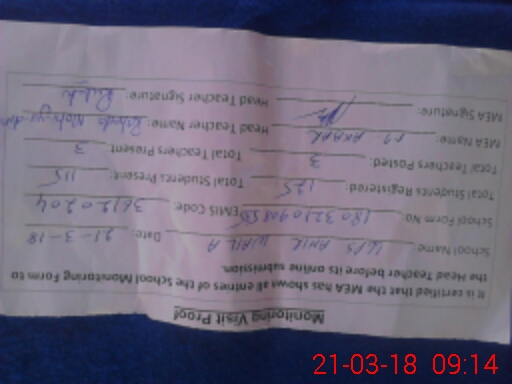 Monitoring Visit Proof
It is certified that the MEA has shown all entries of the School Monitoring Form to
the Head Teacher before its online submission.
School Name: GPS AMIR WAILA Date: 21-3-18
School Form No: EMIS Code: 36120204
Total Students Registered: 125 Total Students Present: 115
Total Teachers Posted: 3 Total Teachers Present: 3
MEA Name: Head Teacher Name:
MEA Signature: Head Teacher Signature:
21-03-18 09:14